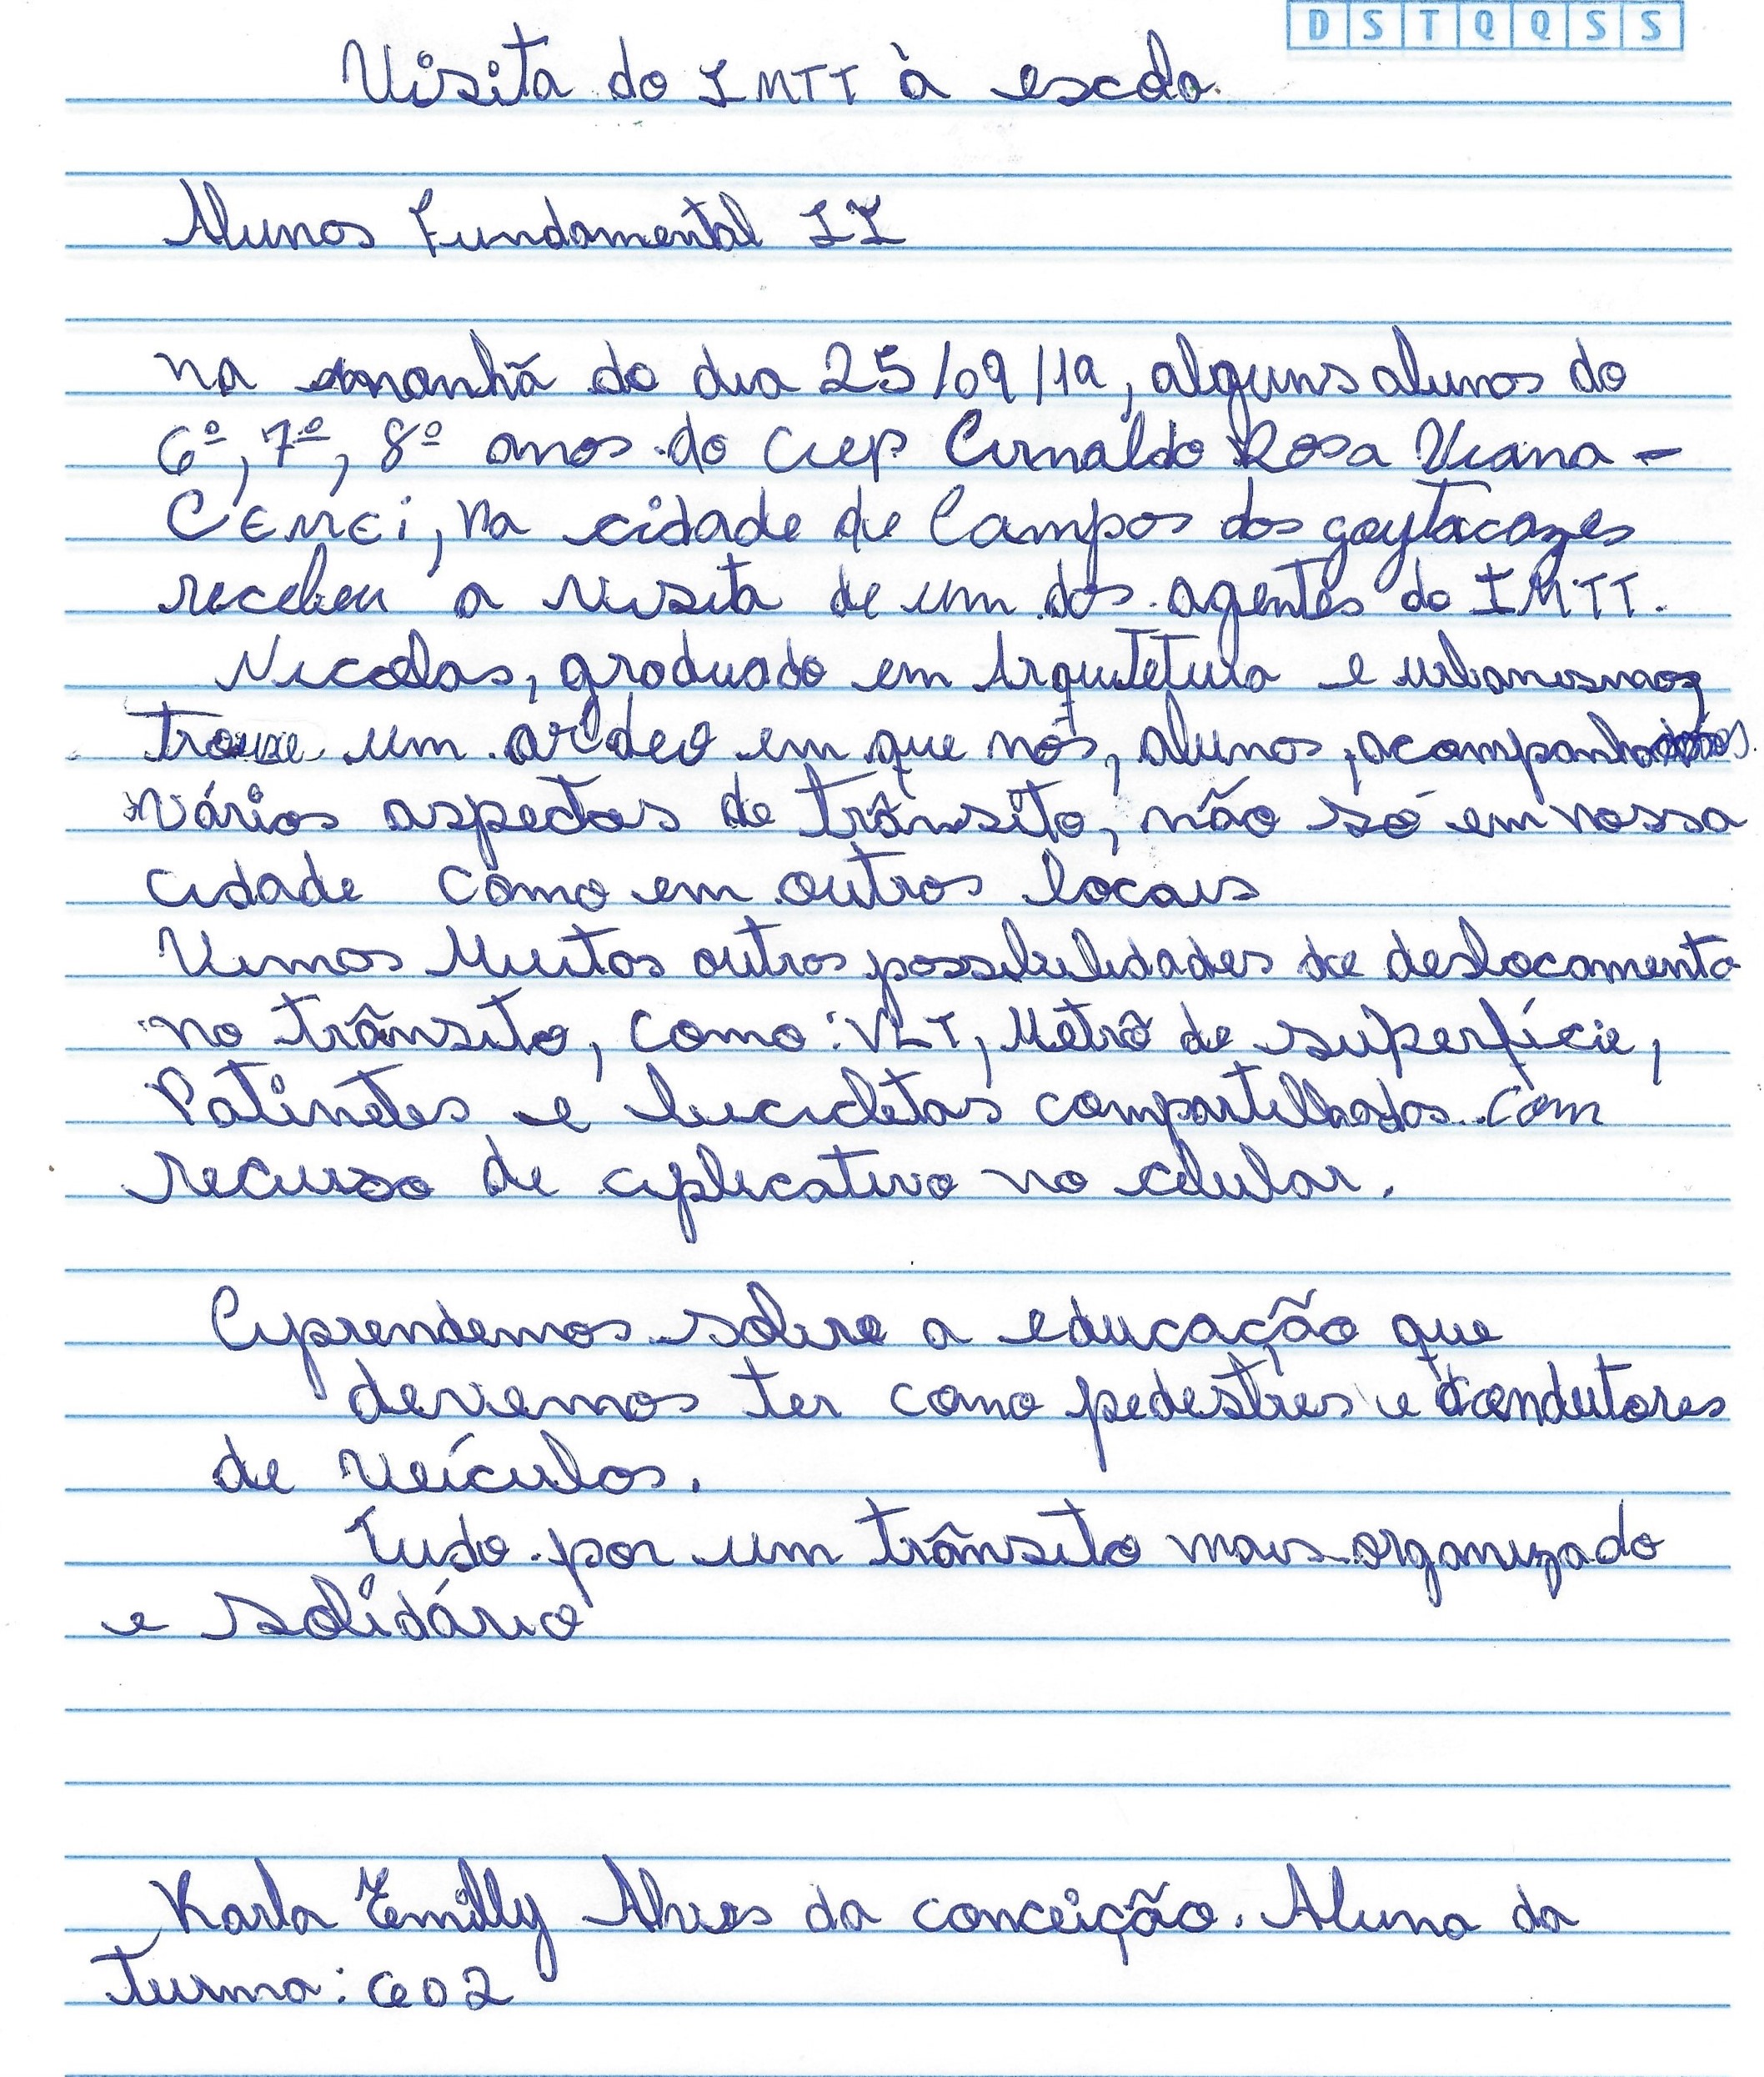 D S T Q Q S S
Visita do IMTT à escola
Alunos Fundamental II
na manhã do dia 25/09/19, alguns alunos do
6º, 7º, 8º anos do Ciep Arnaldo Rosa Viana -
CEMEi, na cidade de Campos dos goytacazes
recebeu a visita de um dos agentes do IMTT.
Nicolas, graduado em Arquitetura e urbanismo,
trouxe um em que nós, alunos,
vários aspectos de trânsito, não só em nossa
cidade como em outros locais
Vimos Muitas outras possibilidades de deslocamento
no trânsito, como: VLT, Metrô de superfície,
Patinetes e bicicletas compartilhados com
recurso de aplicativo no celular.
Aprendemos sobre a educação que
devemos ter como pedestres e condutores
de veículos.
Tudo por um trânsito mais organizado
e solidário
Karla Emilly Alves da conceição. Aluna da
turma: 602